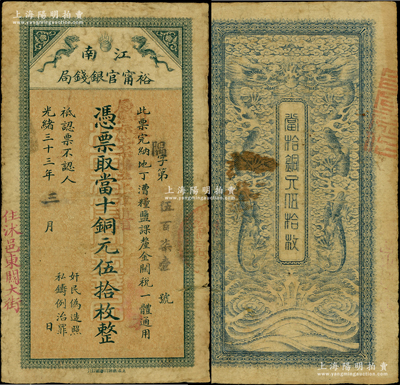 江南
裕甯官銀錢局
此票完納地丁漕糧鹽課釐金關稅一體通用
字第 伍百柒壹 號
憑票取當十銅元伍拾枚整
祇認票不認人
光緒三十三年 二 月 日
奸民偽造照
私鑄例治罪
住沭邑東關大街
當拾銅元伍拾枚
上海陽明拍賣
www.ymauction.com